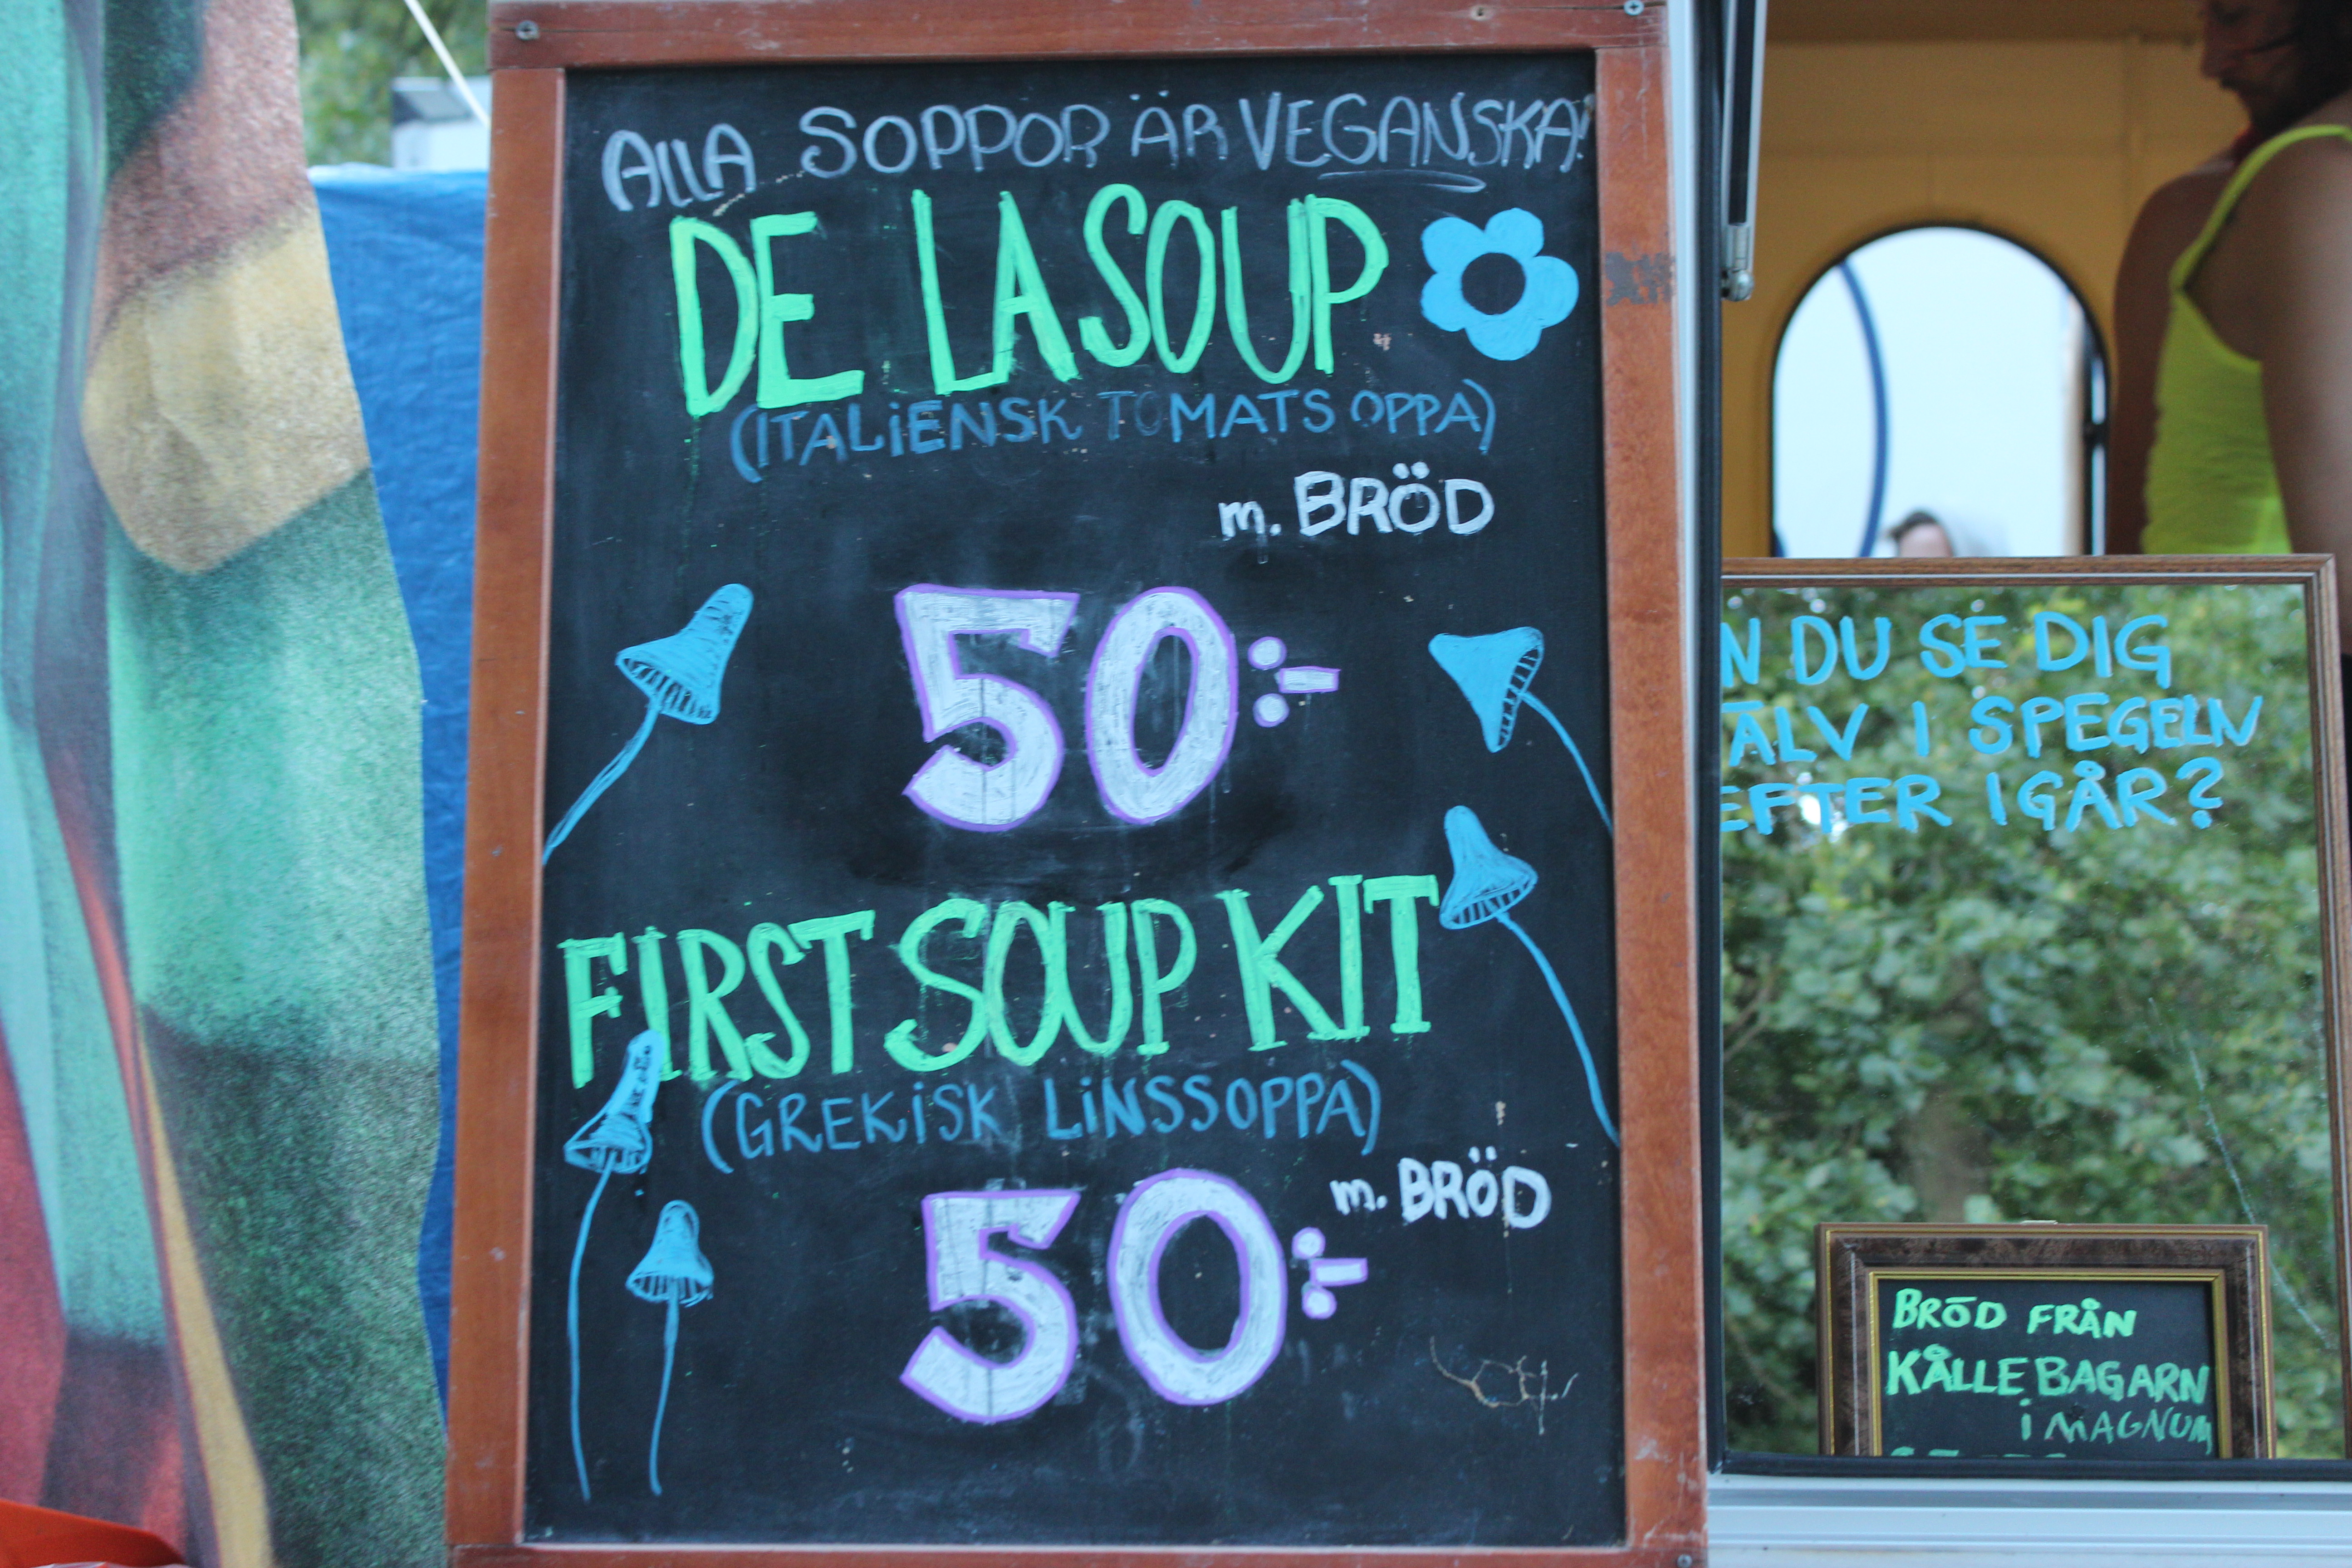 ALLA SOPPOR ÄR VEGANSKA!
DE LA SOUP
(ITALIENSK TOMATSOPPA)
m. BRÖD
50:-
FIRST SOUP KIT
(GREKISK LINSSOPPA)
m. BRÖD
50:-
N DU SE DIG
ÄLV I SPEGELN
EFTER IGÅR?
BRÖD FRÅN
KÅLLEBAGARN
i MAGNUM